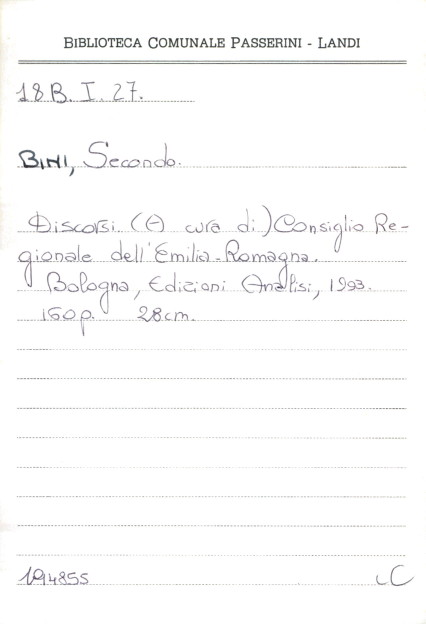 BIBLIOTECA COMUNALE PASSERINI - LANDI
18B. I. 27.
BINI, Secondo.
Discorsi. (A cura di) Consiglio Re-
gionale dell'Emilia-Romagna.
Bologna, Edizioni Analisi, 1993.
160p. 28cm.
194855
LC